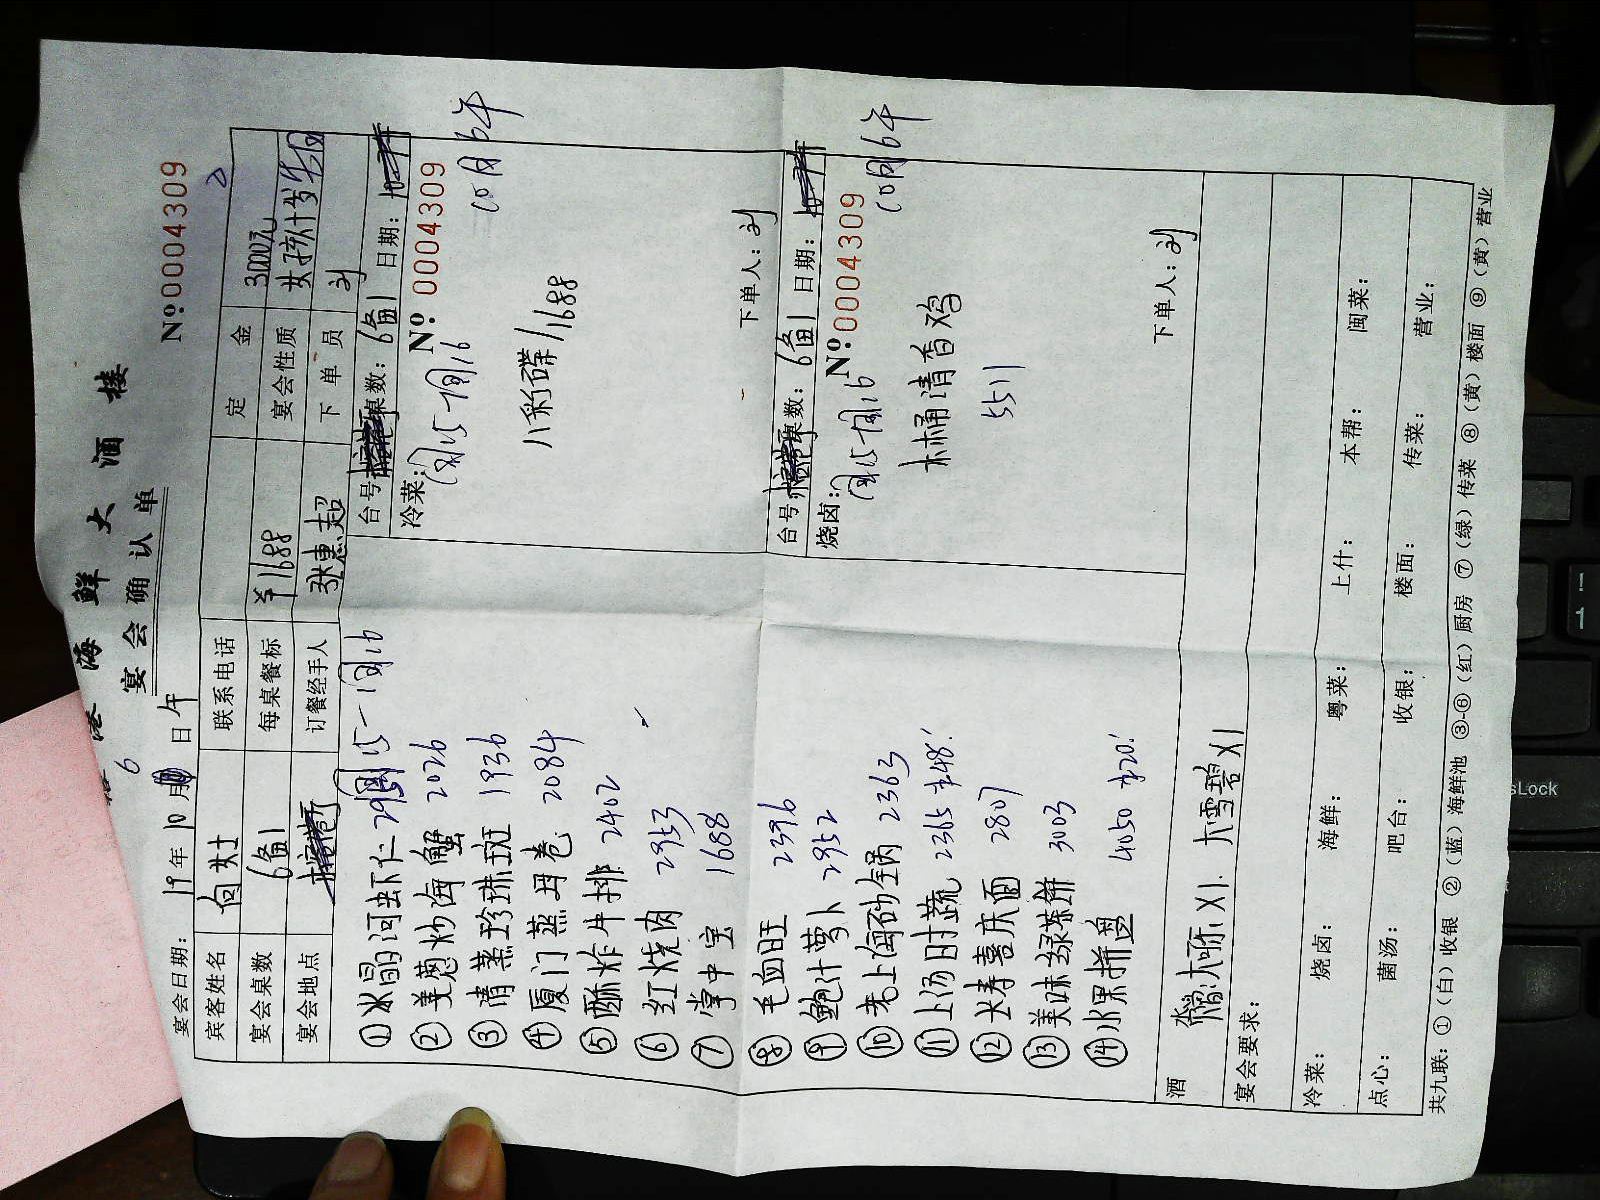 港海鲜大酒楼
宴会确认单
№0004309
宴会日期： 19年10月6日午
宾客姓名 向女士 联系电话 定金 3000元
宴会桌数 6备1 每桌餐标 ¥1688 宴会性质 女孩十岁生日
宴会地点 订餐经手人 张惠超 下单员 刘
①水晶河虾仁
②姜葱炒海蟹 2026
③清蒸珍珠斑 1936
④厦门蒸双卷 2084
⑤酥炸牛排 2402
⑥红烧肉 2953
⑦掌中宝 1688
⑧毛血旺 2396
⑨鲍汁萝卜 2952
⑩老上海砂锅 2363
⑪上汤时蔬 2365 ¥48!
⑫长寿喜庆面 2807
⑬美味绿茶饼 3003
⑭水果拼盘 4050 ¥20!
台号 桌数：6备1 日期：
冷菜： №0004309 10月6午
八彩碟/1688
下单人：刘
台号 桌数：6备1 日期：
烧卤： №0004309 10月6午
木桶清香鸡
5511
下单人：刘
酒 大可乐X1. 大雪碧X1
宴会要求：
冷菜： 烧卤： 海鲜： 粤菜： 上什： 本帮： 闽菜：
点心： 菌汤： 吧台： 收银： 楼面： 传菜： 营业：
共九联：①（白）收银 ②（蓝）海鲜池 ③-⑥（红）厨房 ⑦（绿）传菜 ⑧（黄）楼面 ⑨（黄）营业
sLock